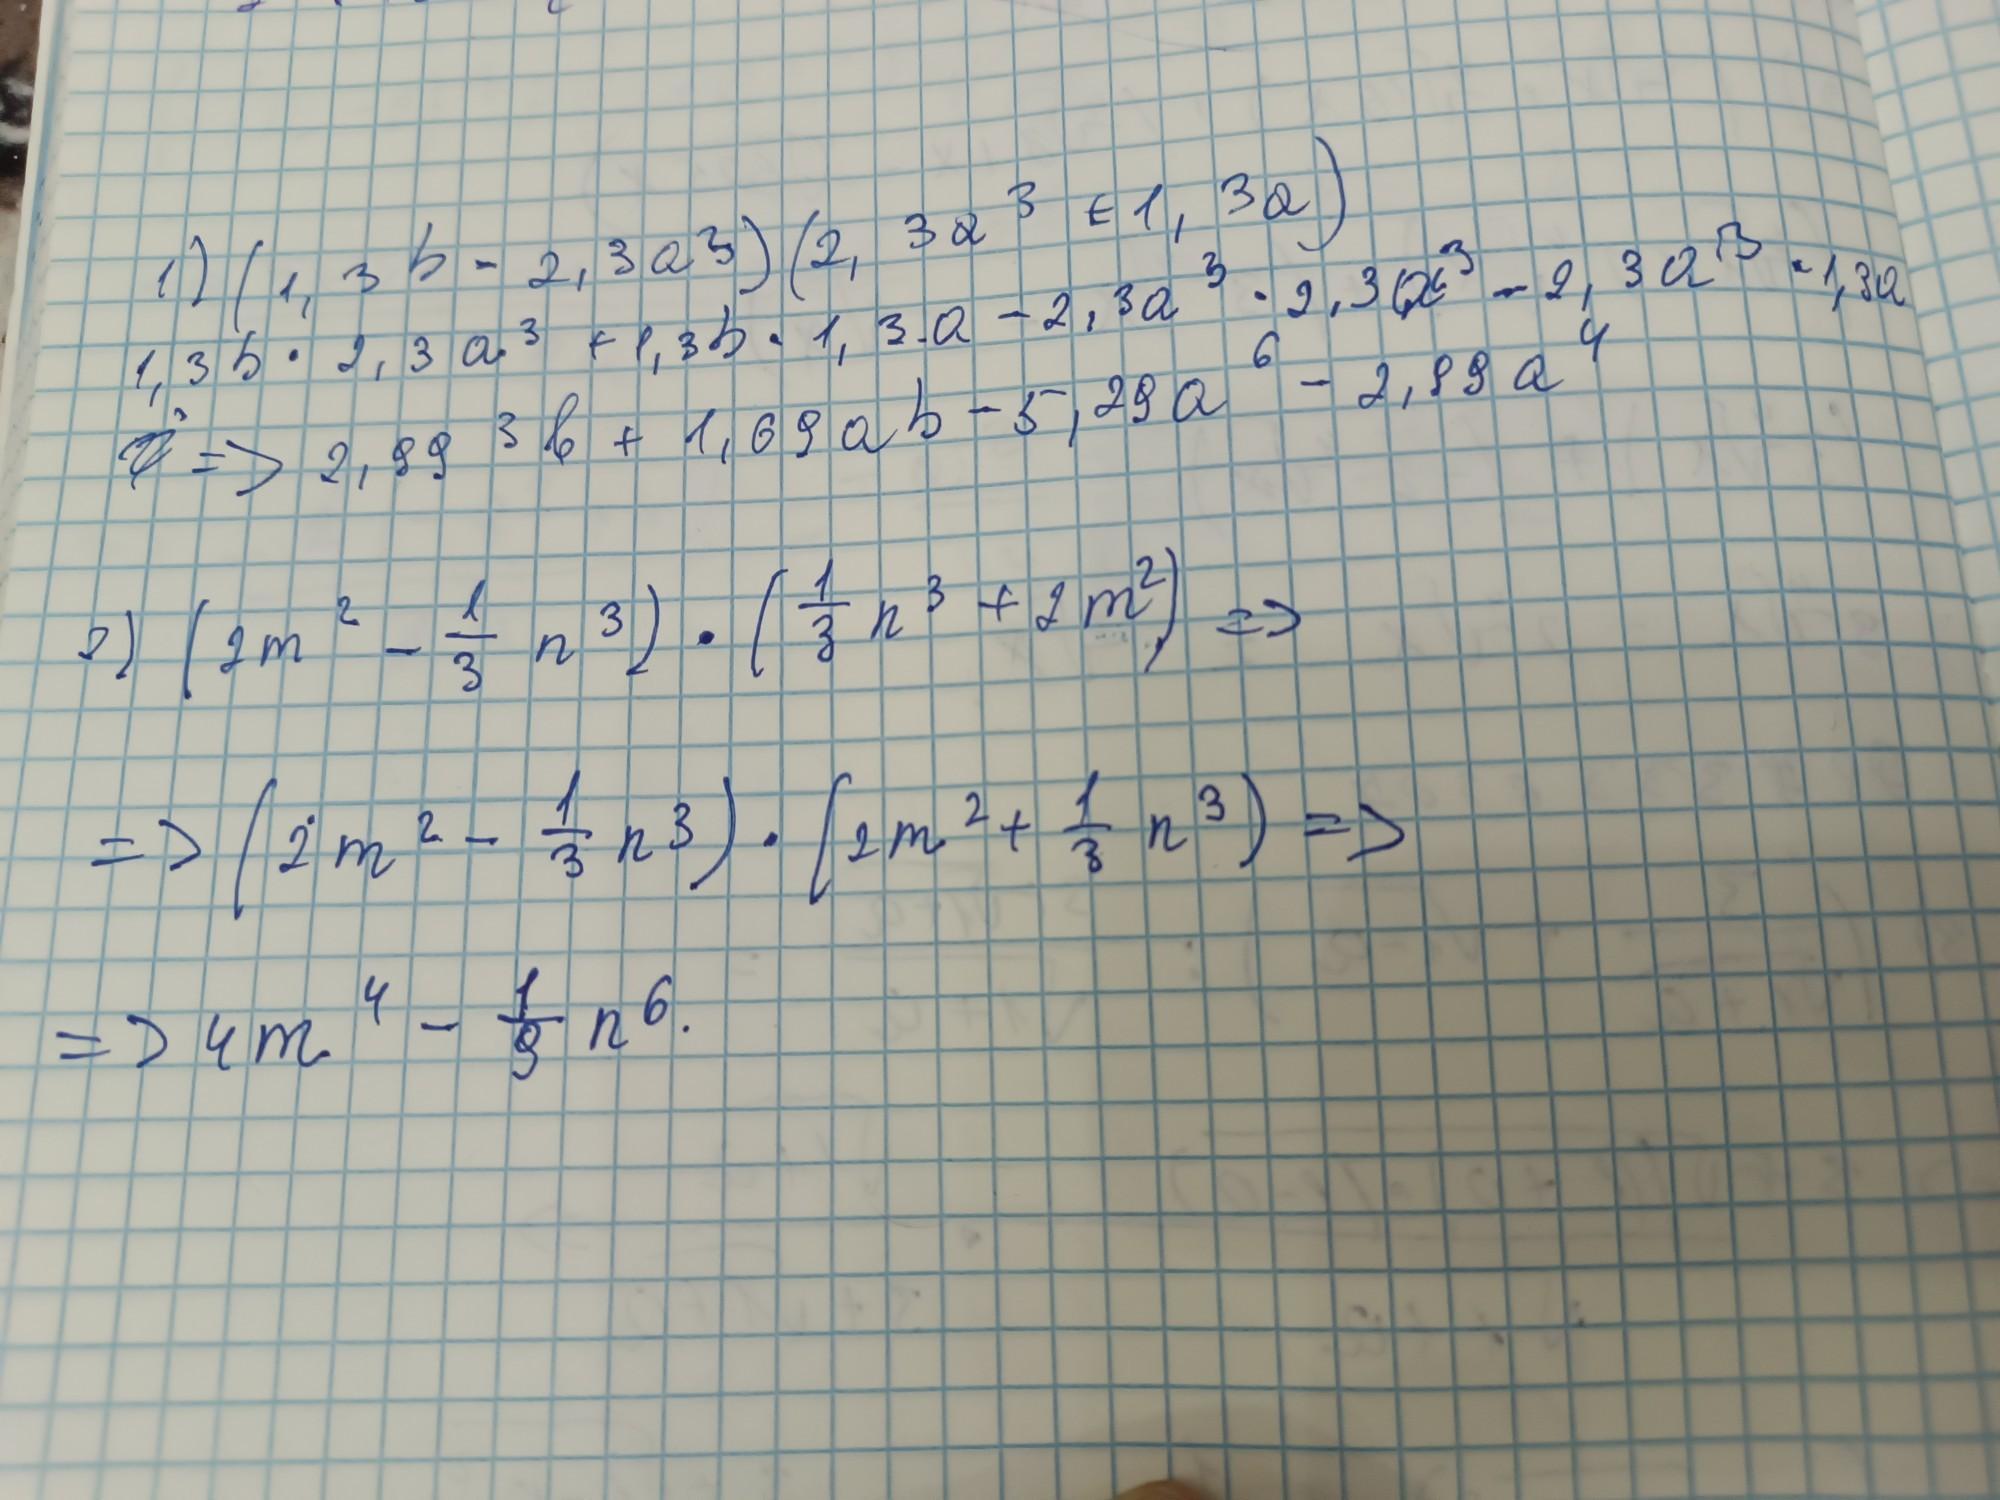 1) (1,3b - 2,3a³)(2,3a³ + 1,3a)
1,3b · 2,3a³ + 1,3b · 1,3a - 2,3a³ · 2,3a³ - 2,3a³ · 1,3a
=> 2,99 ³b + 1,69ab - 5,29a⁶ - 2,99a⁴
2) (2m² - 1/3 n³) · (1/3 n³ + 2m²) =>
=> (2m² - 1/3 n³) · (2m² + 1/3 n³) =>
=> 4m⁴ - 1/9 n⁶.